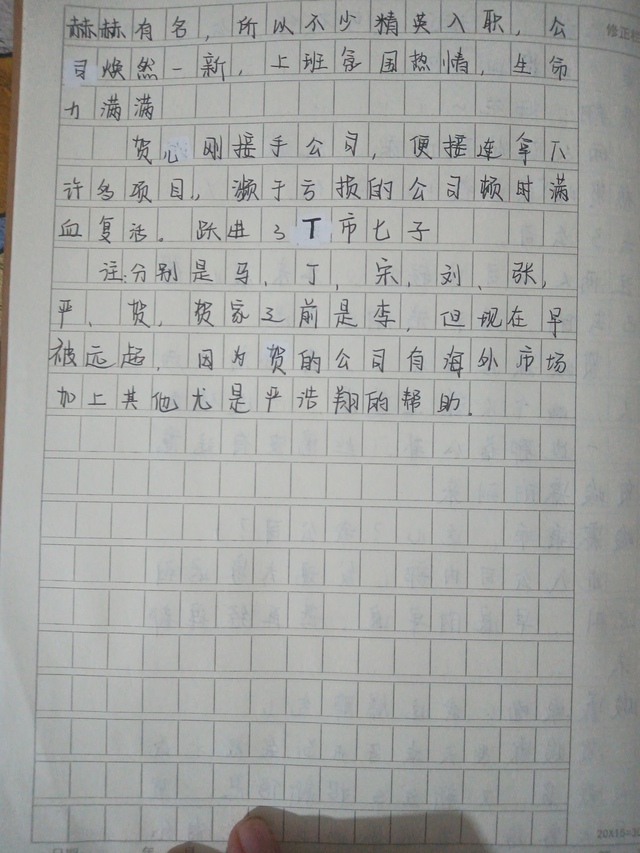 赫赫有名，所以不少精英入职，公
司焕然一新，上班氛围热情，生命
力满满
贺儿刚接手公司，便接连拿下
许多项目，濒于亏损的公司顿时满
血复活。跃进了丁市七子
注:分别是马、丁，宋，刘、张，
严、贺，贺家之前是李，但现在早
被远超，因为贺的公司有海外市场
加上其他尤是严浩翔的帮助.
修正栏
20X15=30